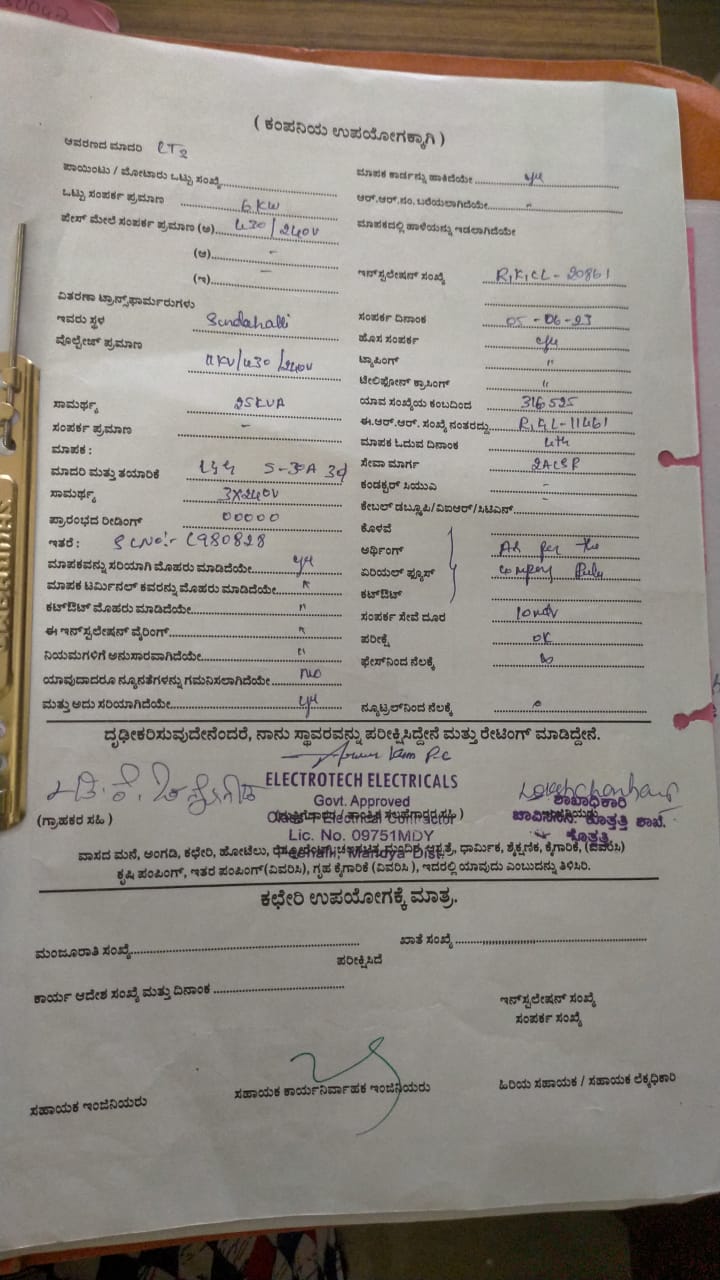 ( ಕಂಪನಿಯ ಉಪಯೋಗಕ್ಕಾಗಿ )
ಆವರಣದ ಮಾದರಿ LT2
ಪಾಯಿಂಟು / ಮೋಟಾರು ಒಟ್ಟು ಸಂಖ್ಯೆ
ಒಟ್ಟು ಸಂಪರ್ಕ ಪ್ರಮಾಣ 6 KW
ಪೇಸ್ ಮೇಲೆ ಸಂಪರ್ಕ ಪ್ರಮಾಣ (ಅ) 430/240V
(ಆ) -
(ಇ) -
ವಿತರಣಾ ಟ್ರಾನ್ಸ್‌ಫಾರ್ಮರುಗಳು
ಇವರು ಸ್ಥಳ Sundahalli
ವೋಲ್ಟೇಜ್ ಪ್ರಮಾಣ
11KV/430/240V
ಸಾಮರ್ಥ್ಯ 25KVA
ಸಂಪರ್ಕ ಪ್ರಮಾಣ -
ಮಾಪಕ :
ಮಾದರಿ ಮತ್ತು ತಯಾರಿಕೆ 5-30A
ಸಾಮರ್ಥ್ಯ 3X240V
ಪ್ರಾರಂಭದ ರೀಡಿಂಗ್ 00000
ಇತರೆ : SLNO:- C980828
ಮಾಪಕವನ್ನು ಸರಿಯಾಗಿ ಮೊಹರು ಮಾಡಿದೆಯೇ yes
ಮಾಪಕ ಟರ್ಮಿನಲ್ ಕವರನ್ನು ಮೊಹರು ಮಾಡಿದೆಯೇ "
ಕಟ್‌ಔಟ್ ಮೊಹರು ಮಾಡಿದೆಯೇ "
ಈ ಇನ್‌ಸ್ಟಲೇಷನ್ ವೈರಿಂಗ್ "
ನಿಯಮಗಳಿಗೆ ಅನುಸಾರವಾಗಿದೆಯೇ "
ಯಾವುದಾದರೂ ನ್ಯೂನತೆಗಳನ್ನು ಗಮನಿಸಲಾಗಿದೆಯೇ no
ಮತ್ತು ಅದು ಸರಿಯಾಗಿದೆಯೇ yes
ಮಾಪಕ ಕಾರ್ಡನ್ನು ಹಾಕಿದೆಯೇ yes
ಆರ್.ಆರ್.ನಂ. ಬರೆಯಲಾಗಿದೆಯೇ "
ಮಾಪಕದಲ್ಲಿ ಹಾಳೆಯನ್ನು ಇಡಲಾಗಿದೆಯೇ
ಇನ್‌ಸ್ಟಲೇಷನ್ ಸಂಖ್ಯೆ 20861
ಸಂಪರ್ಕ ದಿನಾಂಕ 05-06-23
ಹೊಸ ಸಂಪರ್ಕ yes
ಟ್ಯಾಪಿಂಗ್ "
ಟೆಲಿಫೋನ್ ಕ್ರಾಸಿಂಗ್ "
ಯಾವ ಸಂಖ್ಯೆಯ ಕಂಬದಿಂದ 316525
ಈ.ಆರ್.ಆರ್. ಸಂಖ್ಯೆ ನಂತರದ್ದು 11461
ಮಾಪಕ ಓದುವ ದಿನಾಂಕ 4th
ಸೇವಾ ಮಾರ್ಗ 2ACSR
ಕಂಡಕ್ಟರ್ ಸಿಯುಎ -
ಕೇಬಲ್ ಡಬ್ಲೂಪಿ/ವಿಐಆರ್/ಸಿಟಿಎನ್ -
ಕೊಳವೆ
ಅರ್ಥಿಂಗ್ As per the
ಏರಿಯಲ್ ಫ್ಯೂಸ್ Company Rule
ಕಟ್‌ಔಟ್
ಸಂಪರ್ಕ ಸೇವೆ ದೂರ
ಪರೀಕ್ಷೆ OK
ಫೇಸ್‌ನಿಂದ ನೆಲಕ್ಕೆ
ನ್ಯೂಟ್ರಲ್‌ನಿಂದ ನೆಲಕ್ಕೆ
ದೃಢೀಕರಿಸುವುದೇನೆಂದರೆ, ನಾನು ಸ್ಥಾವರವನ್ನು ಪರೀಕ್ಷಿಸಿದ್ದೇನೆ ಮತ್ತು ರೇಟಿಂಗ್ ಮಾಡಿದ್ದೇನೆ.
ELECTROTECH ELECTRICALS
Govt. Approved
Class-1 Electrical Contractor
Lic. No. 09751MDY
Mandya Dist.
(ಗ್ರಾಹಕರ ಸಹಿ )
ಶಾಖಾಧಿಕಾರಿ
ಚಾವಿಸನಿನಿ. ಕೊತ್ತತ್ತಿ ಶಾಖೆ.
ಕೊತ್ತತ್ತಿ
ವಾಸದ ಮನೆ, ಅಂಗಡಿ, ಕಛೇರಿ, ಹೋಟೆಲು, ಆಸ್ಪತ್ರೆ, ಧಾರ್ಮಿಕ, ಶೈಕ್ಷಣಿಕ, ಕೈಗಾರಿಕೆ, (ವಿವರಿಸಿ)
ಕೃಷಿ ಪಂಪಿಂಗ್, ಇತರ ಪಂಪಿಂಗ್(ವಿವರಿಸಿ), ಗೃಹ ಕೈಗಾರಿಕೆ (ವಿವರಿಸಿ ), ಇದರಲ್ಲಿ ಯಾವುದು ಎಂಬುದನ್ನು ತಿಳಿಸಿರಿ.
ಕಛೇರಿ ಉಪಯೋಗಕ್ಕೆ ಮಾತ್ರ.
ಮಂಜೂರಾತಿ ಸಂಖ್ಯೆ ಖಾತೆ ಸಂಖ್ಯೆ
ಪರೀಕ್ಷಿಸಿದೆ
ಕಾರ್ಯ ಆದೇಶ ಸಂಖ್ಯೆ ಮತ್ತು ದಿನಾಂಕ
ಇನ್‌ಸ್ಟಲೇಷನ್ ಸಂಖ್ಯೆ
ಸಂಪರ್ಕ ಸಂಖ್ಯೆ
ಸಹಾಯಕ ಇಂಜಿನಿಯರು ಸಹಾಯಕ ಕಾರ್ಯನಿರ್ವಾಹಕ ಇಂಜಿನಿಯರು ಹಿರಿಯ ಸಹಾಯಕ / ಸಹಾಯಕ ಲೆಕ್ಕಧಿಕಾರಿ